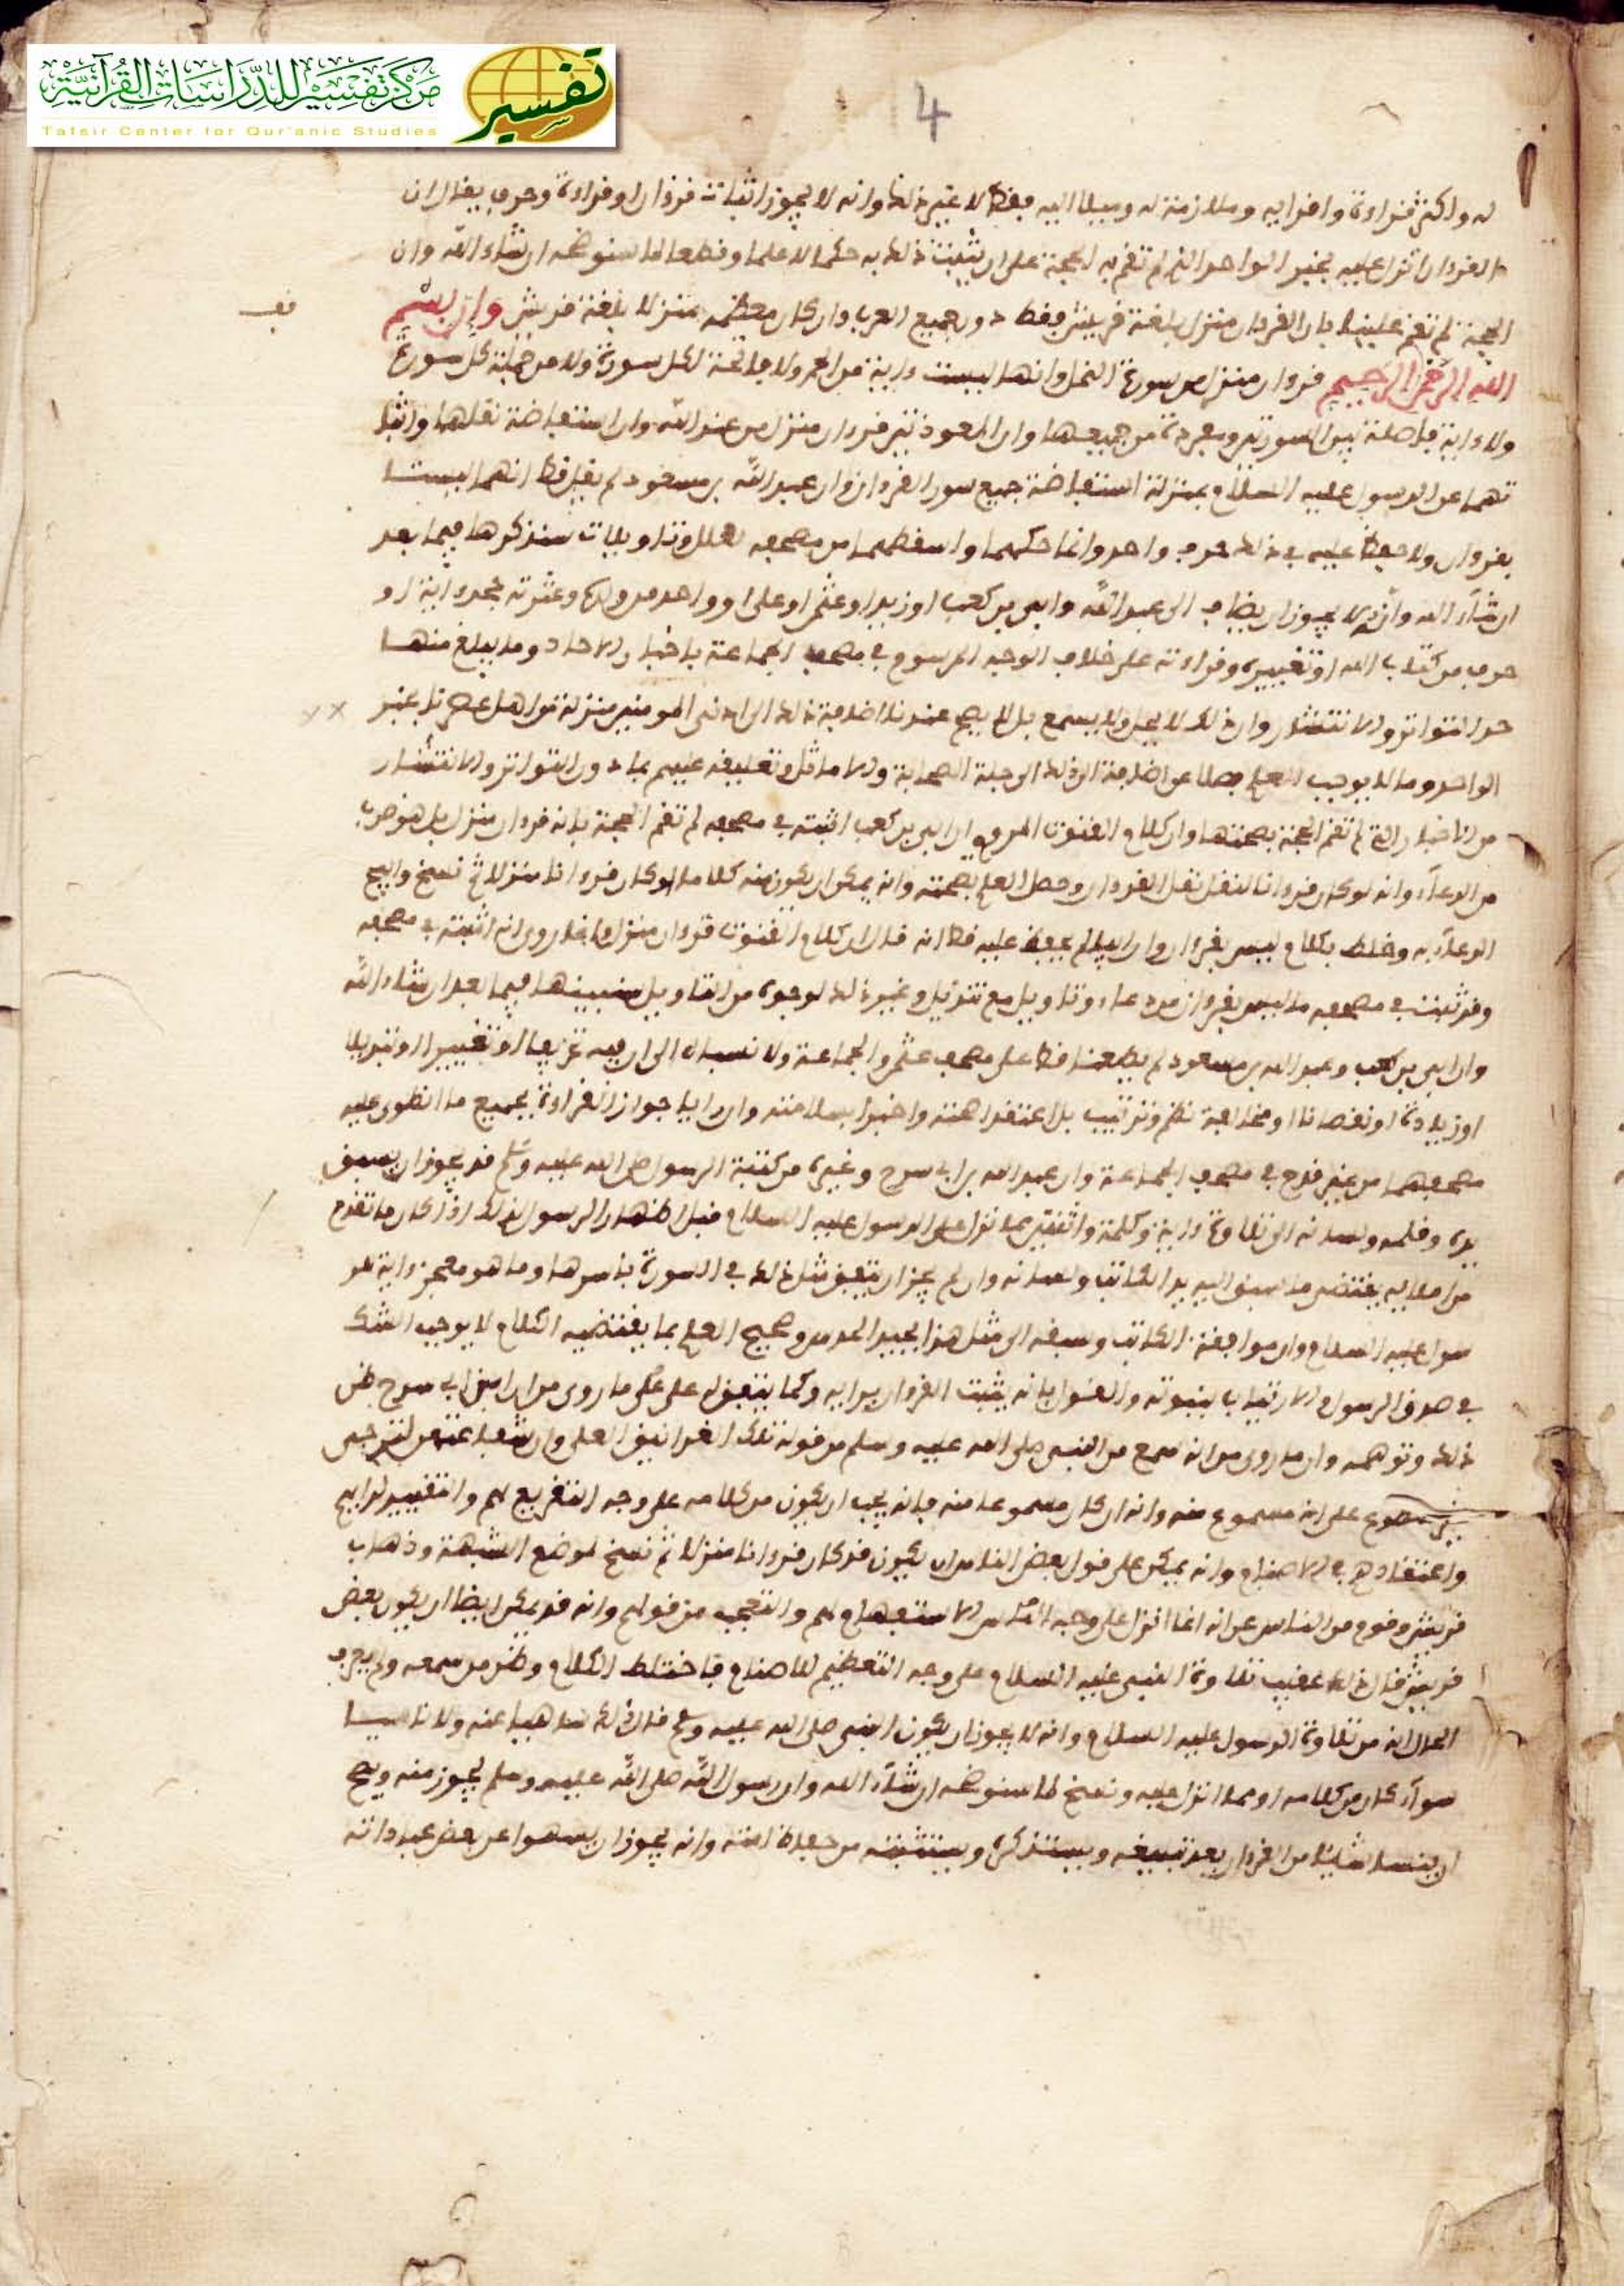 مركز تفسير للدراسات القرآنية
Tafsir Center for Qur'anic Studies
تفسير
4
له واكثر قراءة واقرايه وملازمة له وميلا اليه فقط لا غير ذلك وانه لا يجوز اثبات قرءان او قراءة وحرف يقال ان
القرءان انزل عليه بخبر الواحد الذي لم تقم به الحجة على ان يثبت ذلك به حكما لا علما وقطعا لما سنوضحه ان شاء الله وان
الحجة لم تقم علينا بان القرءان منزل بلغة قريش فقط دون جميع العرب وان كان معظمه منزلا بلغة قريش وان بسم
الله الرحمن الرحيم قرءان منزل من سورة النمل وانها ليست ءاية من الحمد ولا فاتحة لكل سورة ولا من جملة كل سورة
ولا ءاية فاصلة بين السورتين ومفردة من جميعها وان المعوذتين قرءان منزل من عند الله وان استفاضة نقلهما واثبا
تهما عن الرسول عليه السلام بمنزلة استفاضة جميع سور القرءان وان عبد الله بن مسعود لم يقل قط انهما ليستا
بقرءان ولا حفظ عليه في ذلك حرف واحد وانما حكهما واسقطهما من مصحفه لعلل وتاويلات سنذكرها فيما بعد
ان شاء الله وانه لا يجوز ان يضاف الى عبد الله وابي بن كعب او زيد او عثمن او علي او واحد من ولده وعترته جحد ءاية او
حرف من كتاب الله او تغييره وقراءته على خلاف الوجه المرسوم في مصحف الجماعة باخبار الاحاد وما يبلغ منها
حد التواتر والانتشار وان ذلك لا يحل ولا يسمع بل لا يصح عندنا اضافة ذلك الى ادنى المومنين منزلة من اهل عصرنا بخبر
الواحد وما لا يوجب العلم فضلا عن اضافة ذلك الى جلة الصحابة والاماثل وتعليقه عليهم بما دون التواتر والانتشار
من الاخبار التي لم تقم الحجة بصحتها وان كلام القنوت المروي ان ابي بن كعب اثبته في مصحفه لم تقم الحجة بانه قرءان منزل بل هو ضرب
من الدعاء وانه لو كان قرءانا لنقل نقل القرءان وحصل العلم بصحته وانه يمكن ان يكون منه كلاما لو كان قرءانا منزلا ثم نسخ وابيح
الدعاء به وخلط بكلام ليس بقرءان وان ابيا لم يحفظ عليه قط انه قال ان كلام القنوت قرءان منزل وانما روي انه اثبته في مصحفه
وقد ثبت في مصحفه ما ليس بقرءان من دعاء وتاويل مع تنزيل وغير ذلك لوجوه من التاويل سنبينها فيما بعد ان شاء الله
وان ابي بن كعب وعبد الله بن مسعود لم يطعنا قط على مصحف عثمن والجماعة ولا نسباه الى ان فيه تحريفا او تغييرا او تبديلا
او زيادة او نقصانا او مخالفة نظم وترتيب بل اعتقدا صحته واخبرا بسلامته وان رايا جواز القراءة بجميع ما انطوى عليه
مصحفهما من غير قدح في مصحف الجماعة وان عبد الله بن ابي سرح وغيره من كتبة الرسول صلى الله عليه وسلم قد يجوز ان يسبق
يده وقلمه ولسانه الى تلاوة ءاية وكلمة واثنتين مما نزل على الرسول عليه السلام قبل اظهار الرسول لذلك اذا كان ما تقدم
من املايه يقتضي ما سبق اليه يد الكاتب ولسانه وان لم يجز ان يتفق مثل ذلك في السورة باسرها وما هو معجز وءاية للر
سول عليه السلام وان موافقة الكاتب وسبقه الى مثل هذا لجيد الحدس وصحيح العلم بما يقتضيه الكلام لا يوجب الشك
في صدق الرسول والارتياب بنبوته والقول بانه يثبت القرءان برايه وكما يتفق له على ما روي من ان ابن ابي سرح ظن
ذلك وتوهمه وان ما روي من انه سمع من النبي صلى الله عليه وسلم من قوله تلك الغرانيق العلى وان شفاعتهن لترتجى
مقطوع على انه مسموع منه وانه ان كان مسموعا منه فانه يجب ان يكون من كلامه على وجه التقريع لهم والتقبيح لرايهم
واعتقادهم في الاصنام وانه يمكن على قول بعض الناس ان يكون قد كان قرءانا منزلا ثم نسخ لموضع الشبهة وذهاب
قريش وقوم من الناس عن انه انما انزل على وجه الاستفهام لهم والتعجب من قولهم وانه قد يمكن ايضا ان يكون بعض
قريش قال ذلك عقيب تلاوة النبي عليه السلام على وجه التعظيم للاصنام فاختلط الكلام وظن من سمعه ولم يعرف
الحال انه من تلاوة الرسول عليه السلام وانه لا يجوز ان يكون النبي صلى الله عليه وسلم قال ذلك ساهيا عنه ولا ناسيا
سواء كان من كلامه او مما انزل عليه ونسخ لما سنوضحه ان شاء الله وان رسول الله صلى الله عليه وسلم يجوز منه ويصح
ان ينسا شيئا من القرءان بعد تبليغه ويستذكره ويستثبته من حفاظ امته وانه يجوز ان يسهوا عن بعض عباداته